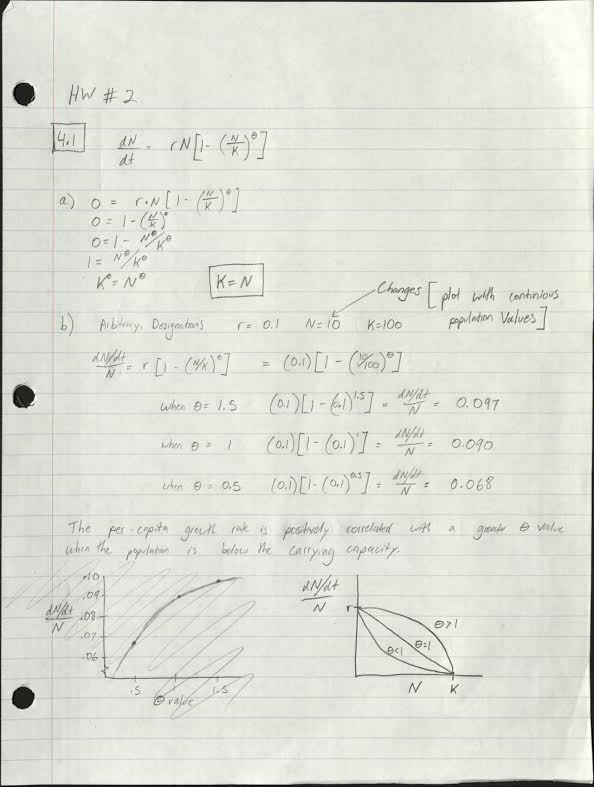 HW # 2
4.1 dN/dt = rN[1-(N/K)^θ]
a) 0 = r•N[1-(N/K)^θ]
0 = 1-(N/K)^θ
0 = 1- N^θ/K^θ
1 = N^θ/K^θ
K^θ = N^θ K=N
Changes [plot with continious
population Values]
b) Arbitrary Designations r = 0.1 N=10 K=100
dN/dt/N = r[1-(N/K)^θ] = (0.1)[1-(10/100)^θ]
when θ = 1.5 (0.1)[1-(0.1)^1.5] = dN/dt/N = 0.097
when θ = 1 (0.1)[1-(0.1)^1] = dN/dt/N = 0.090
when θ = 0.5 (0.1)[1-(0.1)^0.5] = dN/dt/N = 0.068
The per-capita growth rate is positively correlated with a greater θ value
when the population is below the carrying capacity.
dN/dt/N
.10
.09
.08
.07
.06
.5 1 1.5
θ value
dN/dt/N
r
θ>1
θ=1
θ<1
N K